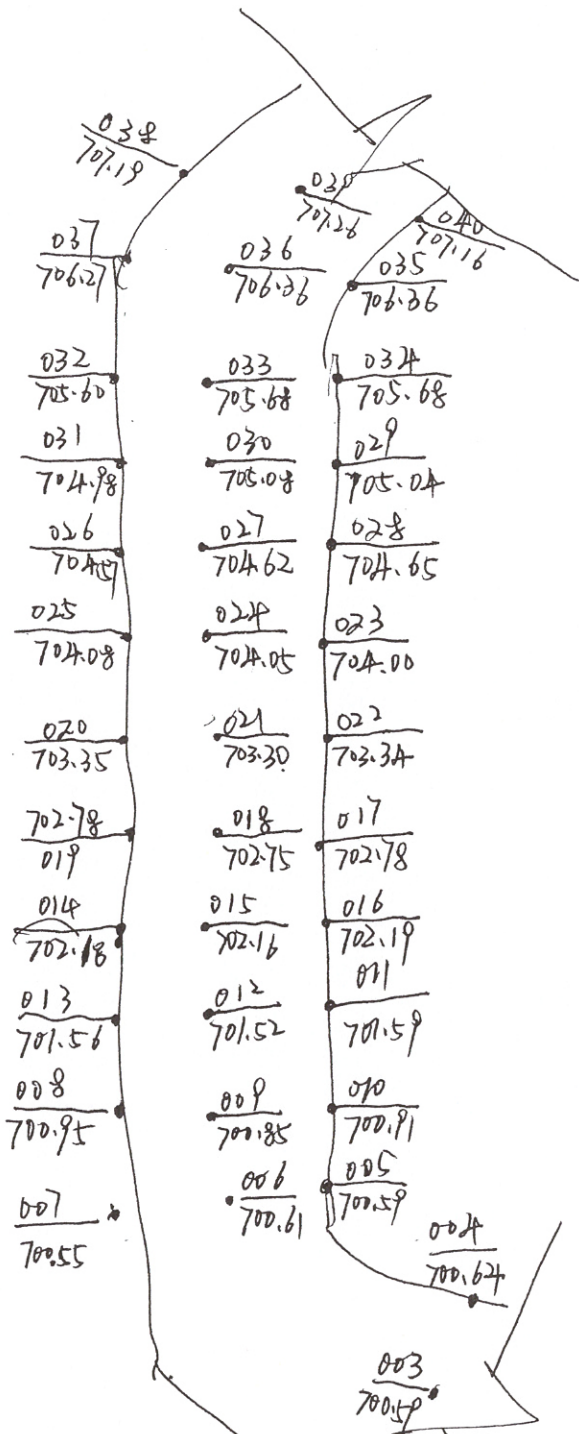 038
707.19
039
707.26
040
707.16
037
706.27
036
706.36
035
706.36
032
705.60
033
705.68
034
705.68
031
704.98
030
705.08
029
705.04
026
704.57
027
704.62
028
704.65
025
704.08
024
704.05
023
704.00
020
703.35
021
703.30
022
703.34
702.78
019
018
702.75
017
702.78
014
702.18
015
702.16
016
702.19
013
701.56
012
701.52
011
701.59
008
700.95
009
700.85
010
700.91
007
700.55
006
700.61
005
700.59
004
700.64
003
700.59